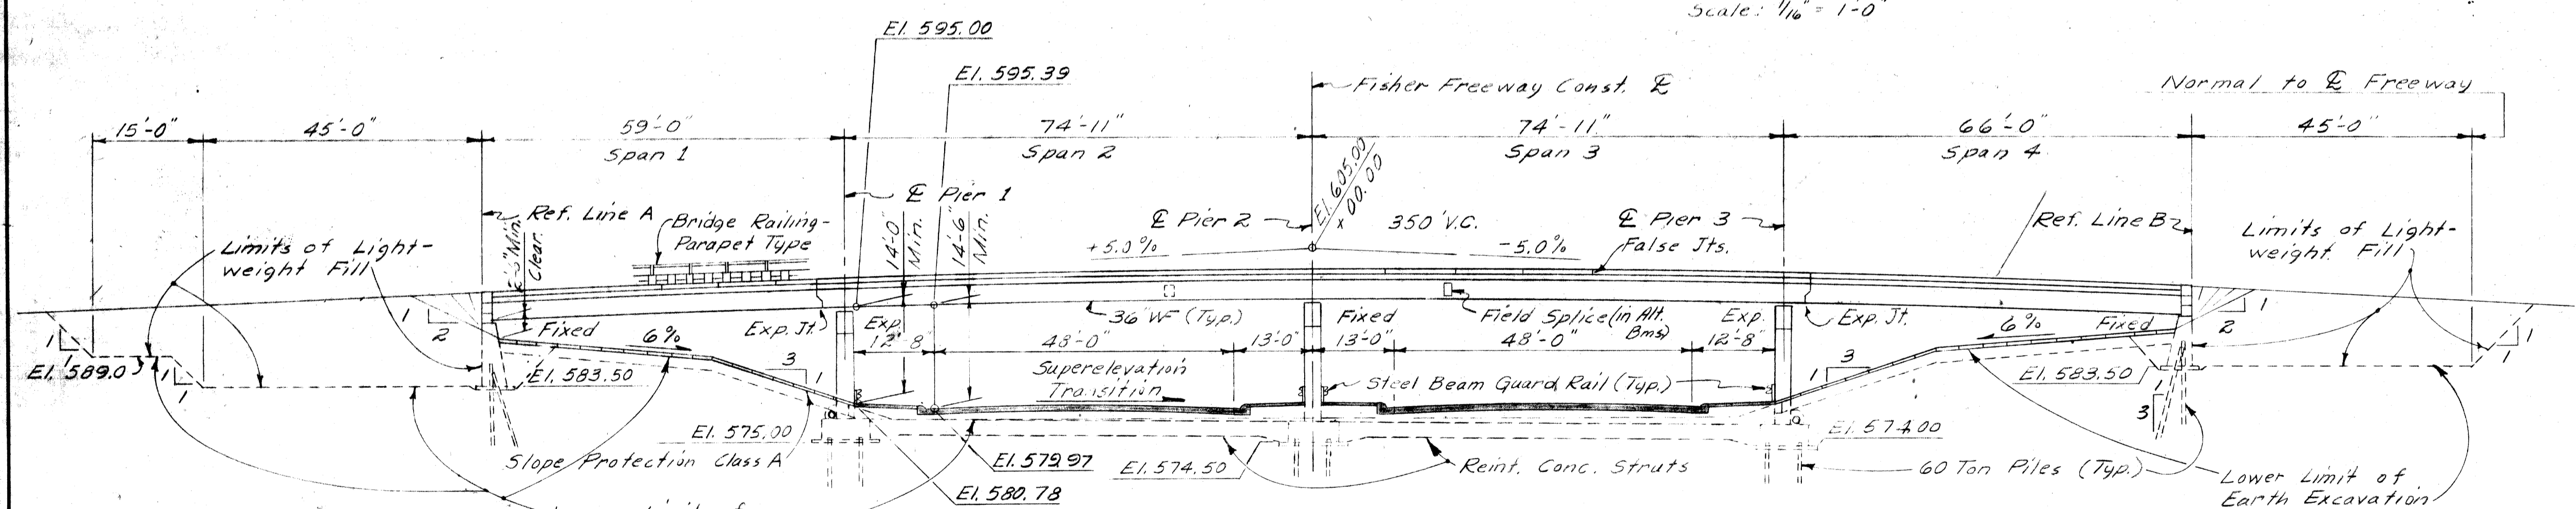 Scale: 1/16" = 1'-0"
El. 595.00
El. 595.39
Fisher Freeway Const. ℄
Normal to ℄ Freeway
15'-0"
45'-0"
59'-0"
74'-11"
74'-11"
66'-0"
45'-0"
Span 1
Span 2
Span 3
Span 4
El. 605.00
+ 00.00
℄ Pier 1
Ref. Line A
Bridge Railing-
Parapet Type
Min.
Clear.
14'-0"
Min.
14'-6"
Min.
℄ Pier 2
350' V.C.
℄ Pier 3
Ref. Line B
Limits of Light-
weight Fill
Limits of Light-
weight Fill
+5.0%
-5.0%
False Jts.
1
2
Fixed
6%
Exp. Jt.
Exp.
12'-8"
36 WF (Typ.)
48'-0"
13'-0"
Fixed
13'-0"
Field Splice (in Alt.
Bms)
48'-0"
Exp.
12'-8"
Exp. Jt.
6%
Fixed
1
2
1
1
El. 589.0
1
1
El. 583.50
3
1
Superelevation
Transition
Steel Beam Guard Rail (Typ.)
3
1
El. 583.50
1
3
1
1
El. 575.00
El. 574.00
Slope Protection Class A
El. 579.97
El. 574.50
Reinf. Conc. Struts
60 Ton Piles (Typ.)
Lower Limit of
Earth Excavation
El. 580.78